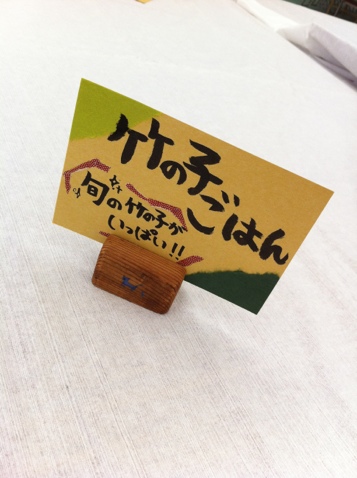 竹の子ごはん
旬の竹の子が
いっぱい!!